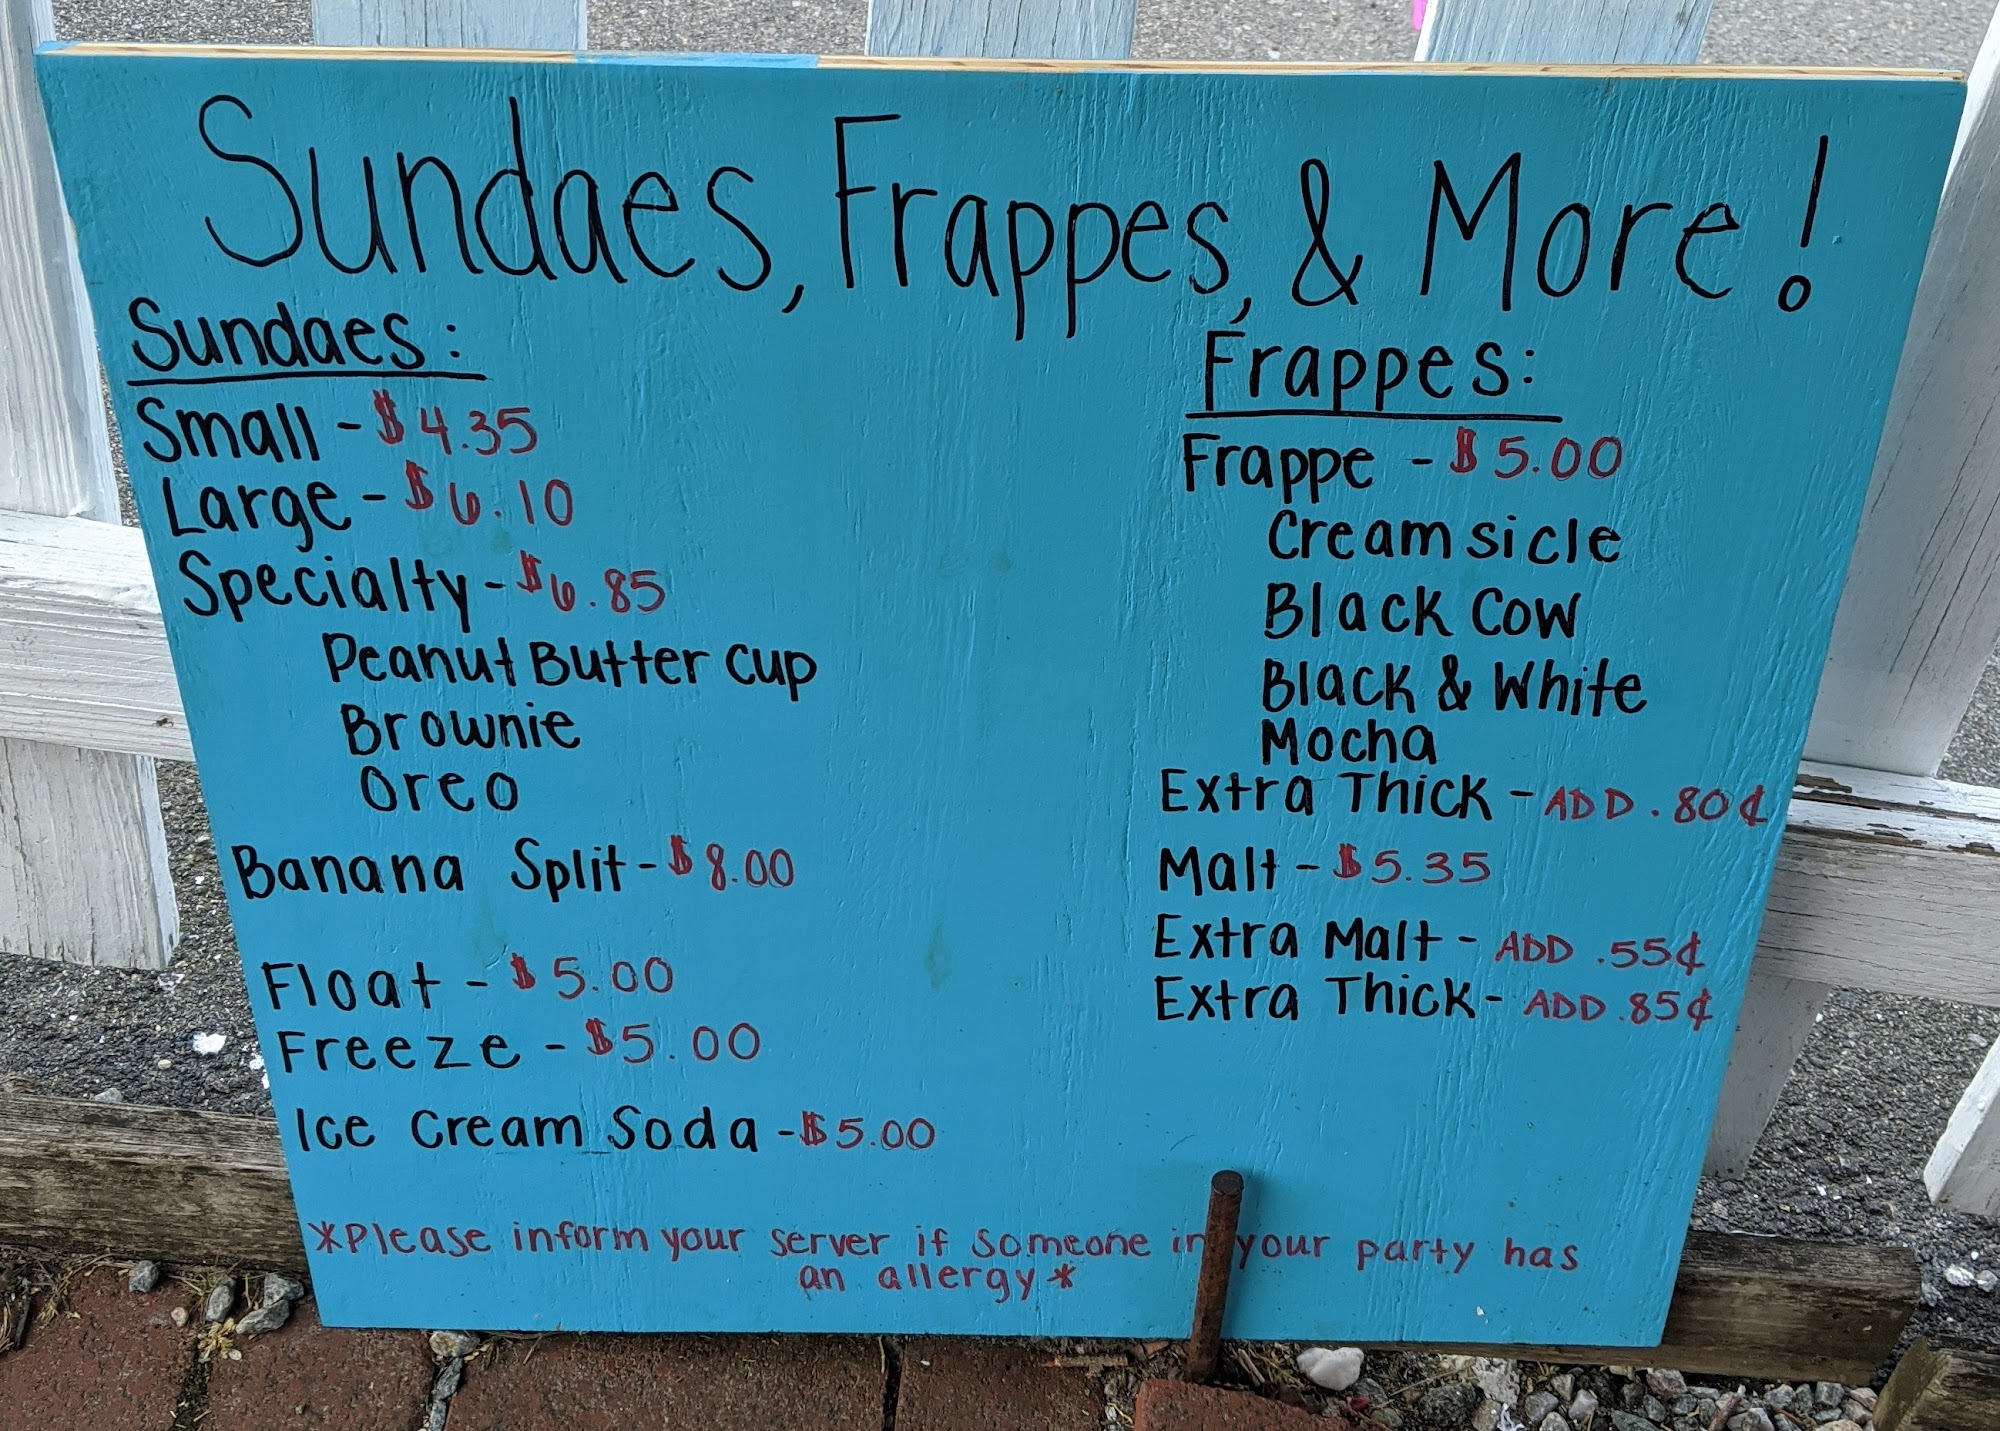 Sundaes, Frappes, & More!
Sundaes:
Small - $4.35
Large - $6.10
Specialty - $6.85
Peanut Butter cup
Brownie
Oreo
Banana Split - $8.00
Float - $5.00
Freeze - $5.00
Ice Cream Soda - $5.00
Frappes:
Frappe - $5.00
Creamsicle
Black Cow
Black & White
Mocha
Extra Thick - ADD .80¢
Malt - $5.35
Extra Malt - ADD .55¢
Extra Thick - ADD .85¢
*Please inform your server if someone in your party has
an allergy*